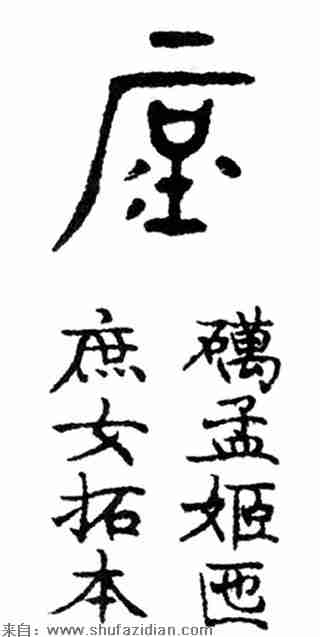 孟姬匜
庶女拓本
来自:www.shufazidian.com